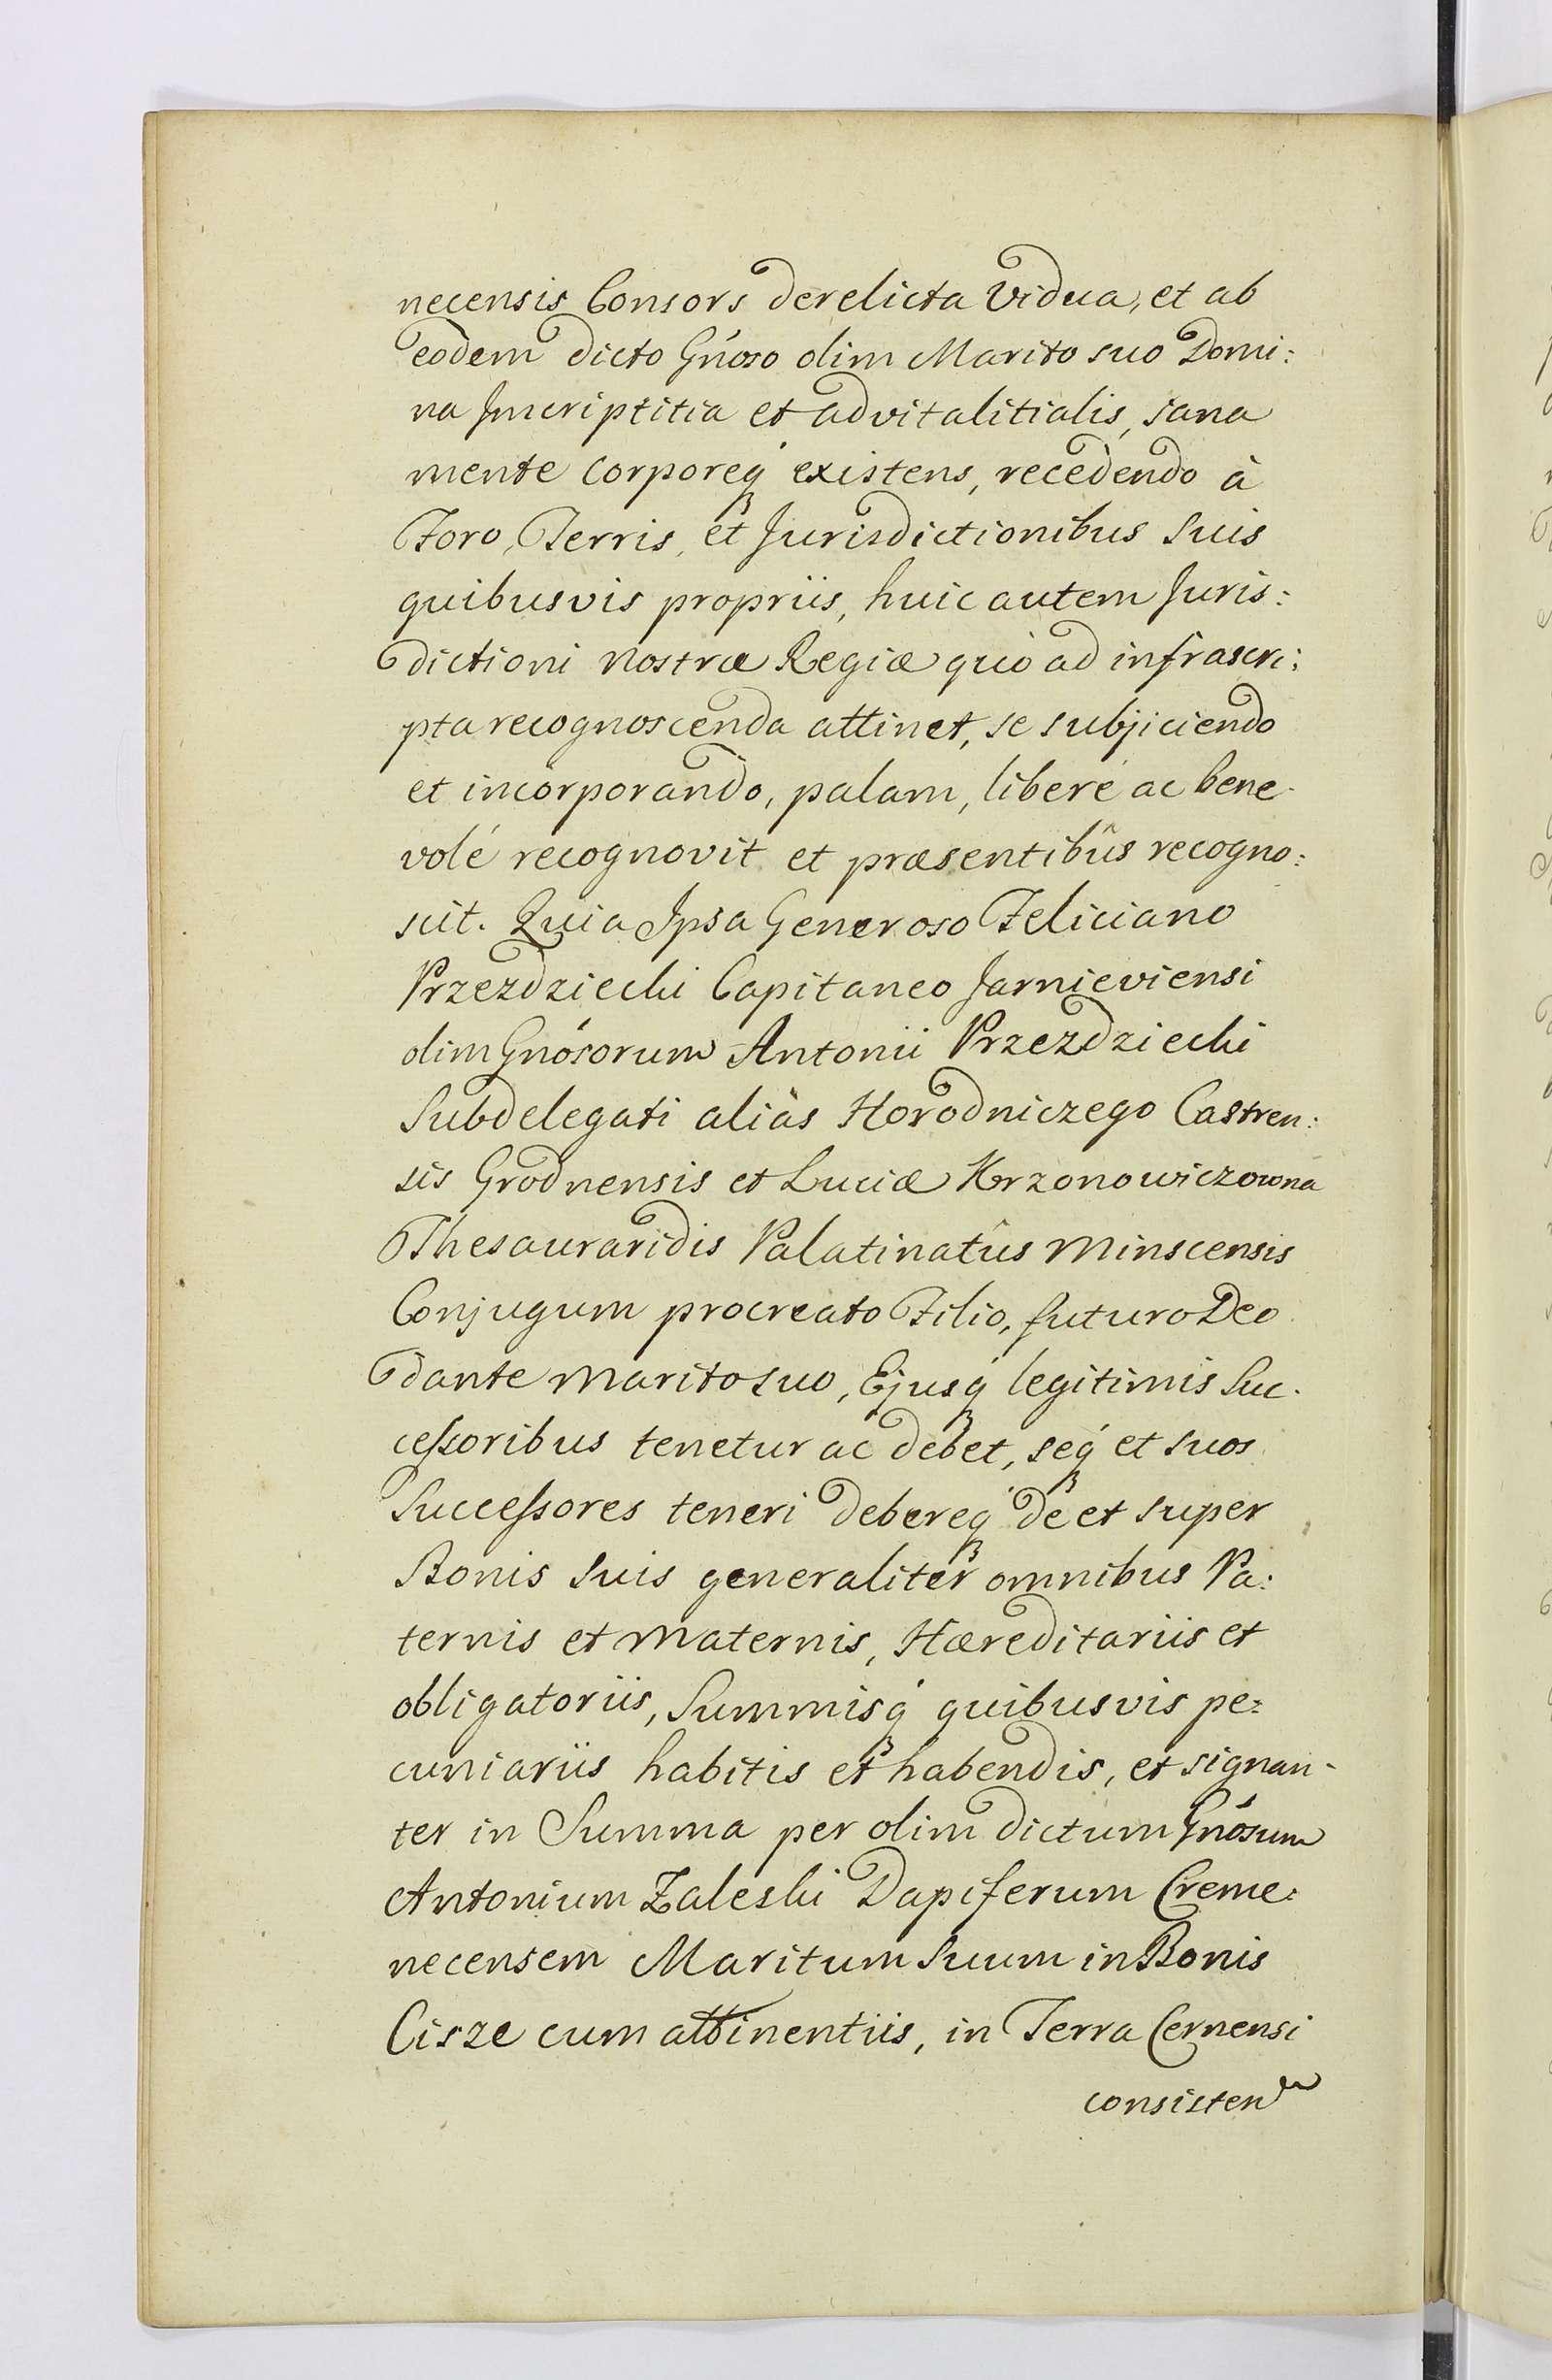 necensis Consors derelicta Vidua, et ab
eodem dicto Gńoso olim Marito suo Domi:
na Inscriptitia et advitalitialis, sana
mente corporeq́ existens, recedendo à
Foro, Terris, et Jurisdictionibus Suis
quibusvis propriis, huic autem Juris:
dictioni nostræ Regiæ quò ad infrascri:
pta recognoscenda attinet, se subjiciendo
et incorporando, palam, liberé ac bene-
volé recognovit et præsentibûs recogno:
scit. Quia Ipsa Generoso Feliciano
Przezdziecki Capitaneo Jarnieviensi
olim Gnósorum Antonii Przezdziecki
Subdelegati aliàs Horodniczego Castren:
sis Grodnensis et Luciæ Krzonowiczowna
Thesauraridis Palatinatûs Minscensis
Conjugum procreato Filio, futuro Deo
dante Marito suo, Ejusq́ legitimis Suc-
cessoribus tenetur ac debet, seq́ et suos
Successores teneri debereq́ de et super
Bonis Suis generaliter omnibus Pa:
ternis et Maternis, Hæreditariis et
obligatoriis, Summisq́ quibusvis pe:
cuniariis habitis et habendis, et signan-
ter in Summa per olim dictum Gnósum
Antonium Zaleski Dapiferum Creme:
necensem Maritum Suum in Bonis
Cisze cum attinentiis, in Terra Cernensi
consisten